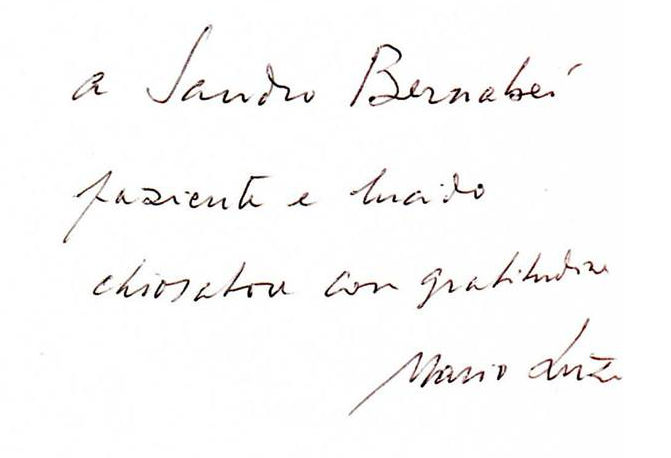 a Sandro Bernabei
paziente e lucido
chiosatore con gratitudine
Mario Luzi